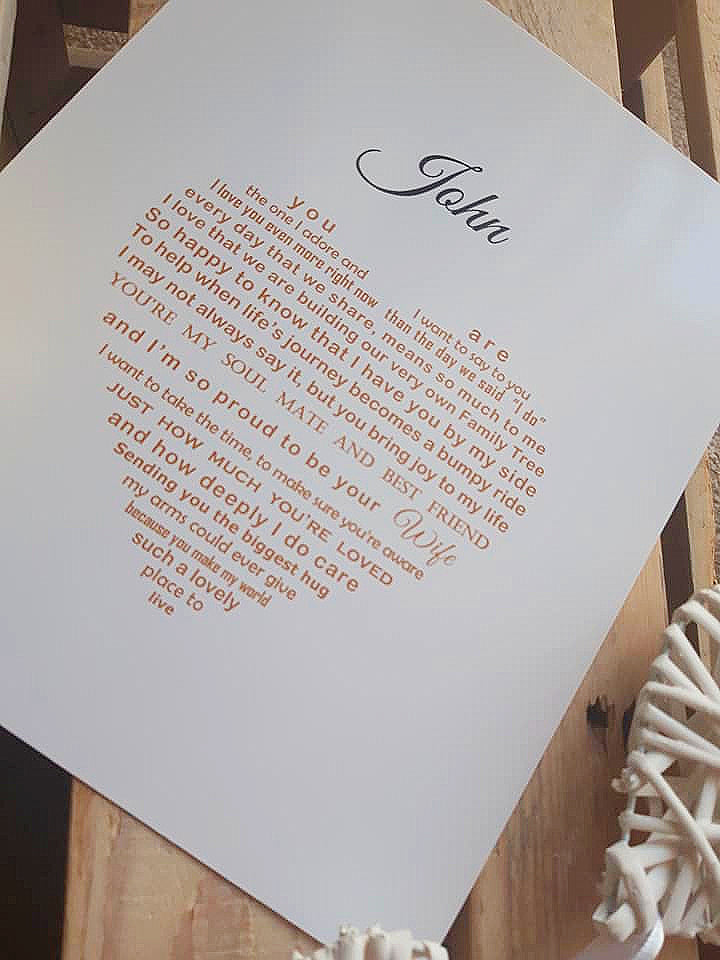 John
you are
the one I adore and I want to say to you
I love you even more right now then the day we said "I do"
every day that we share, means so much to me
I love that we are building our very own Family Tree
So happy to know that I have you by my side
To help when life's journey becomes a bumpy ride
I may not always say it, but you bring joy to my life
YOU'RE MY SOUL MATE AND BEST FRIEND
and I'm so proud to be your Wife
I want to take the time, to make sure you're aware
JUST HOW MUCH YOU'RE LOVED
and how deeply I do care
Sending you the biggest hug
my arms could ever give
because you make my world
such a lovely
place to
live